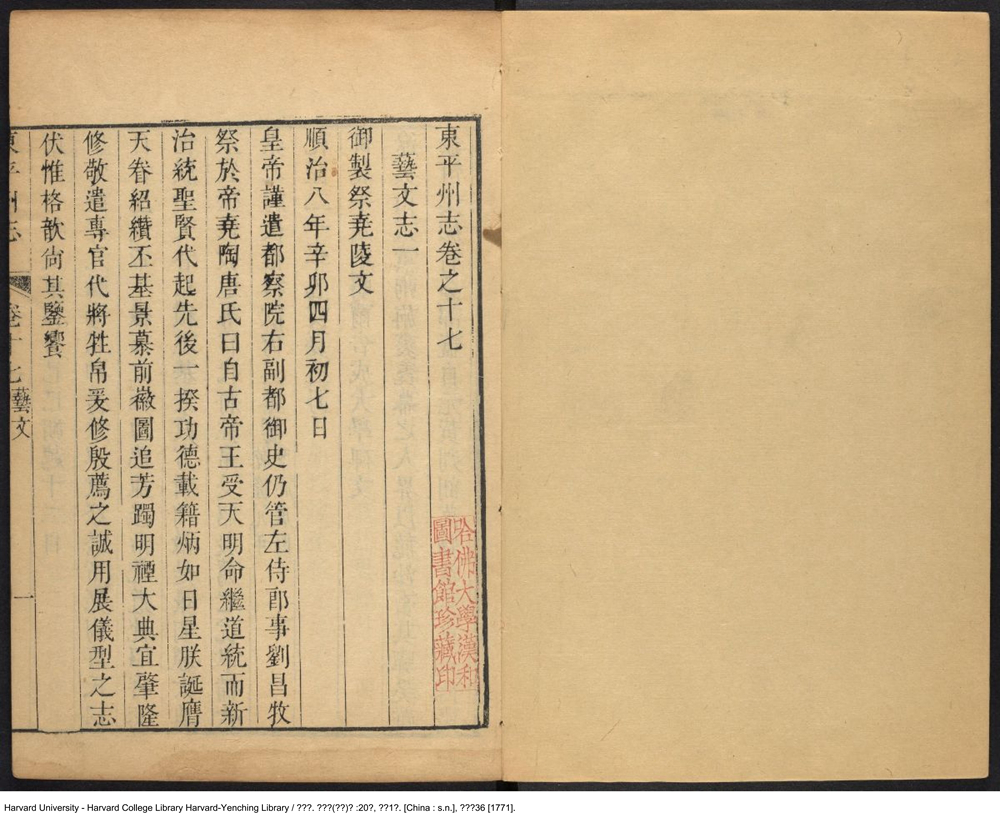 東平州志卷之十七
藝文志一
御製祭堯陵文
順治八年辛卯四月初七日
皇帝謹遣都察院右副都御史仍管左侍郎事劉昌牧
祭於帝堯陶唐氏曰自古帝王受天明命繼道統而新
治統聖賢代起先後一揆功德載籍炳如日星朕誕膺
天眷紹纘丕基景慕前徽圖追芳躅明禋大典宜肇隆
修敬遣專官代將牲帛爰修殷薦之誠用展儀型之志
伏惟格歆尙其鑒饗
東平州志 卷十七藝文 一
哈佛大學漢和
圖書館珍藏印
Harvard University - Harvard College Library Harvard-Yenching Library / ???. ???(??)? :20?, ??1?. [China : s.n.], ???36 [1771].